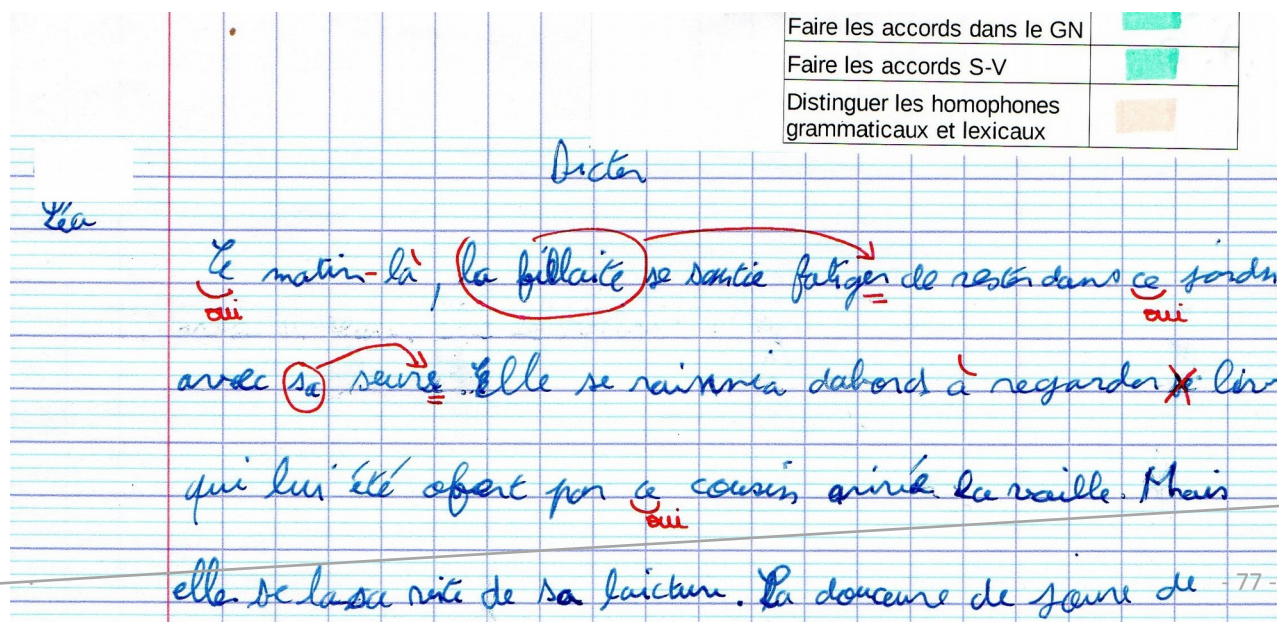 Faire les accords dans le GN
Faire les accords S-V
Distinguer les homophones
grammaticaux et lexicaux
Dicter
Léa
Ce matin-là, la fillaite se sentie fatiger de rester dans ce jardn
oui oui
avec sa seure. Elle se raisinnia dabord à regarder lir
qui lui été ofert par ce cousin arivée la vaille. Mais
oui
elle se lassa vite de sa laicture. La douceure de jaune de
- 77 -